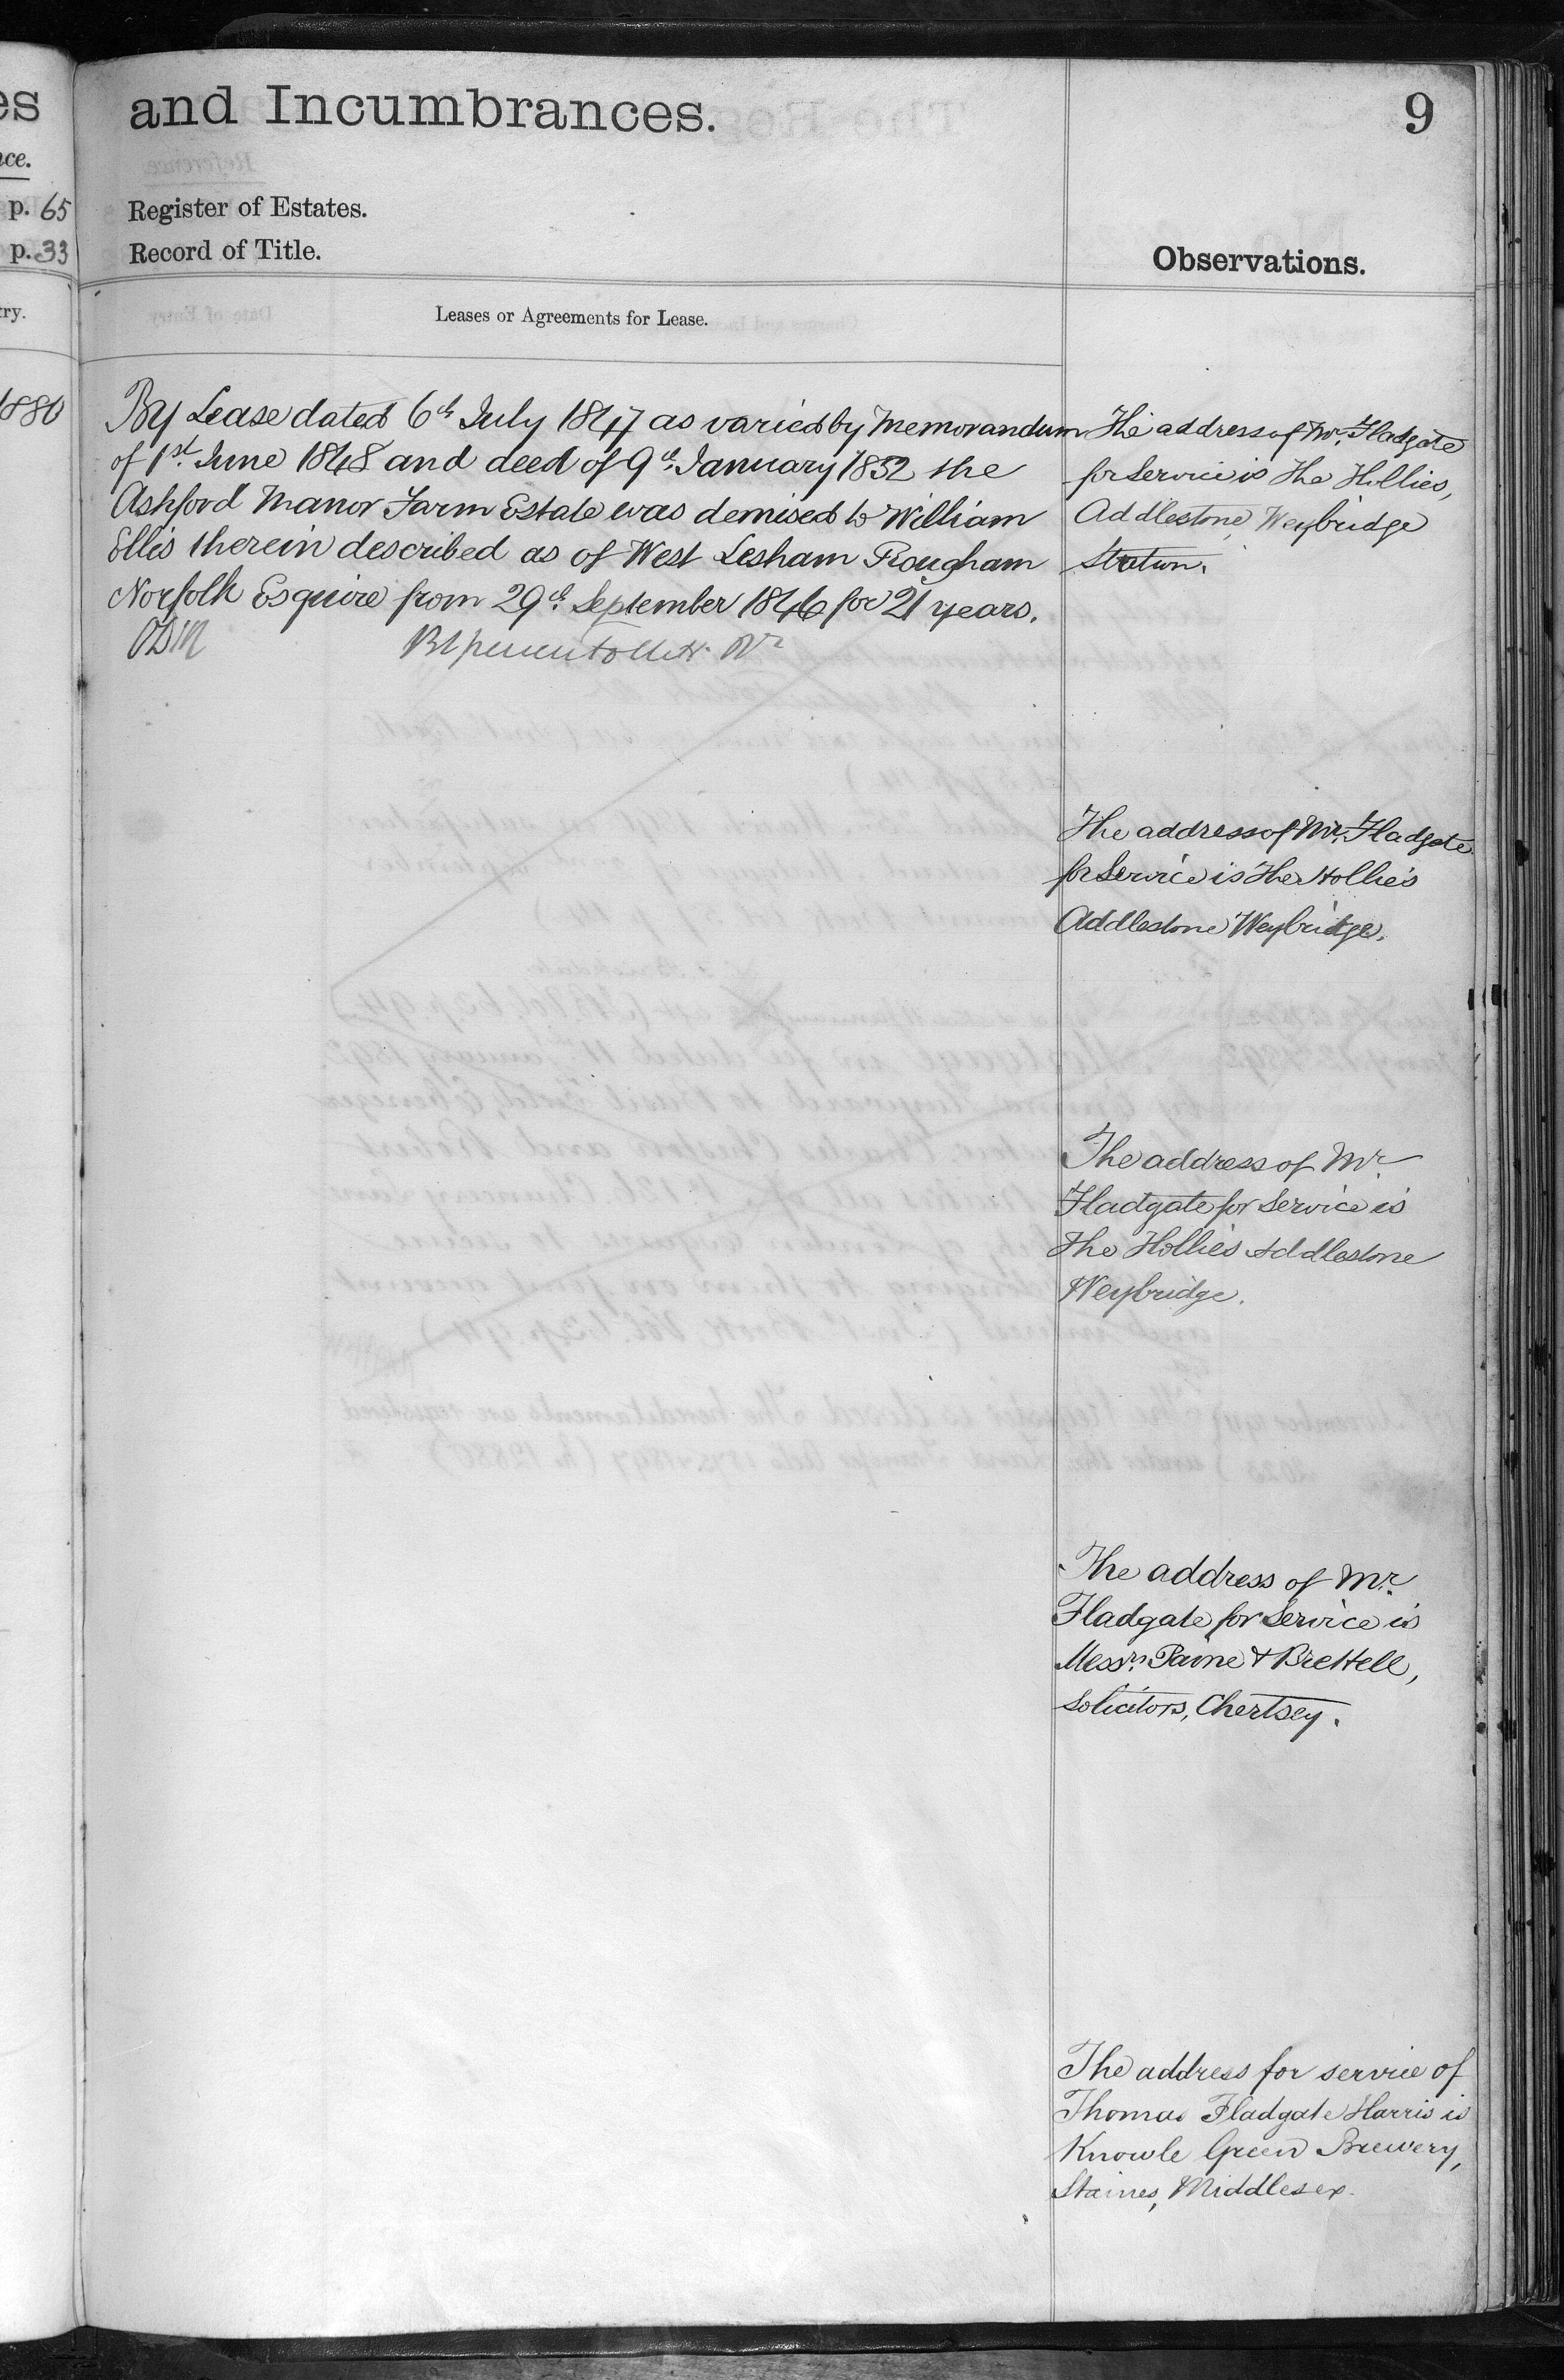 es
and Incumbrances.
9
ce.
p. 65
Register of Estates.
p. 33
Record of Title.
Observations.
try.
Leases or Agreements for Lease.
1880
By Lease dated 6th July 1847 as varied by Memorandum
of 1st June 1848 and deed of 9th January 1852 the
Ashford Manor Farm Estate was demised to William
Ellis therein described as of West Lesham Rougham
Norfolk Esquire from 29th September 1846 for 21 years.
The address of Mr. Fladgate
for Service is The Hollies,
Addlestone, Weybridge
Station.
The address of Mr. Fladgate
for Service is The Hollies
Addlestone Weybridge.
The address of Mr.
Fladgate for Service is
The Hollies Addlestone
Weybridge.
The address of Mr.
Fladgate for Service is
Messrs. Paine & Brettell,
Solicitors, Chertsey.
The address for service of
Thomas Fladgate Harris is
Knowle Green Brewery,
Staines, Middlesex.